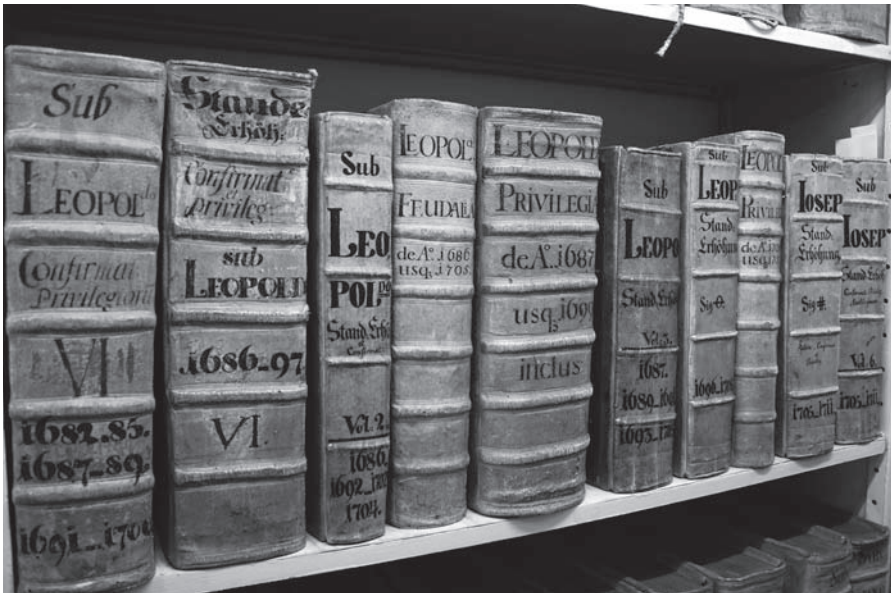 Sub
LEOPOLdo
Confirmat.
Privilegiorū
VI
1682.85.
1687-89.
Stande
Erhöh.
Confirmat.
et
privileg.
sub
LEOPOLD
1686-97.
VI.
Sub
LEO
POLdo
Stand. Erhö
et
Vol. 2.
1686.
1704.
LEOPOLo
FEUDALIA
de Ao. 1686
usq3 1705.
LEOPOLD
PRIVILEGI
de Ao. 1687
usq3 1699
inclus
Sub
LEOPO
Stand. Erhö
Vol. 3.
1687.
Sub
LEOP
Stand.
Erhöhung
LEOPOL
PRIVIL
Sub
IOSEP
Stand.
Erhöhung
Sig #.
1705-1711.
Sub
IOSEP
Stand Erhöhung
Vol. 6.
1705-1711.